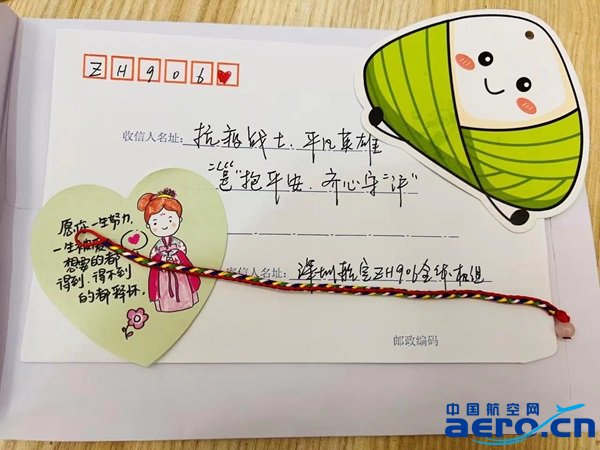 ZH906
收信人名址: 抗疫战士、平凡英雄
抱平安、齐心守"沪"
寄信人名址: 深圳航空ZH906全体机组
邮政编码
愿你一生努力,
一生被
想要的都
得到,得不到
的都释怀.
中国航空网
aero.cn